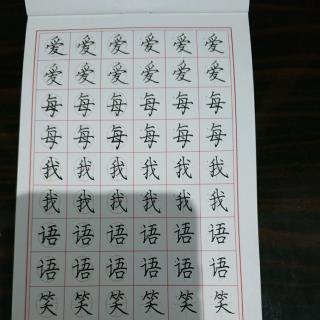 爱爱爱爱爱爱
爱爱爱爱爱爱
每每每每每每
每每每每每每
我我我我我我
我我我我我我
语语语语语语
语语语语语语
笑笑笑笑笑笑